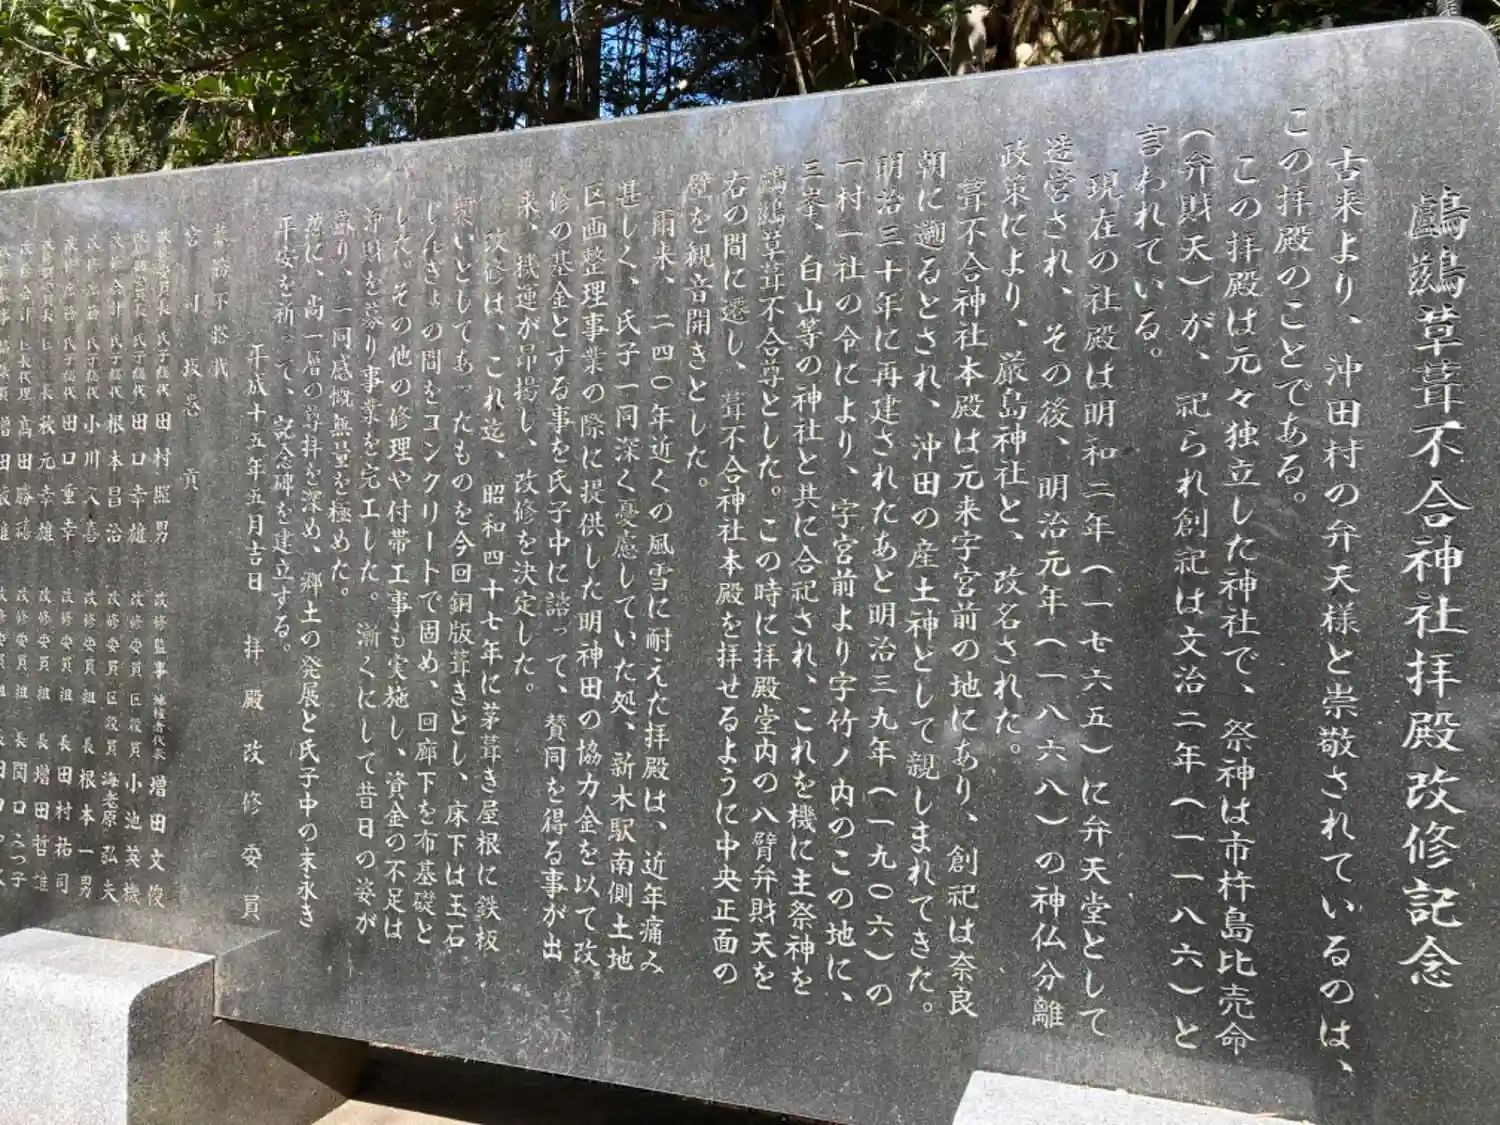 鸕鶿草葺不合神社拝殿改修記念
古来より、沖田村の弁天様と崇敬されているのは、
この拝殿のことである。
この拝殿は元々独立した神社で、祭神は市杵島比売命
（弁財天）が、祀られ創祀は文治二年（一一八六）と
言われている。
現在の社殿は明和二年（一七六五）に弁天堂として
造営され、その後、明治元年（一八六八）の神仏分離
政策により、厳島神社と、改名された。
葺不合神社本殿は元来字宮前の地にあり、創祀は奈良
朝に遡るとされ、沖田の産土神として親しまれてきた。
明治三十年に再建されたあと明治三九年（一九〇六）の
一村一社の令により、字宮前より字竹ノ内のこの地に、
三峯、白山等の神社と共に合祀され、これを機に主祭神を
鸕鶿草葺不合尊とした。この時に拝殿堂内の八臂弁財天を
右の間に遷し、葺不合神社本殿を拝せるように中央正面の
壁を観音開きとした。
爾来、二四〇年近くの風雪に耐えた拝殿は、近年痛み
甚しく、氏子一同深く憂慮していた処、新木駅南側土地
区画整理事業の際に提供した明神田の協力金を以て改
修の基金とする事を氏子中に諮って、賛同を得る事が出
来、機運が昂揚し、改修を決定した。
改修は、これ迄、昭和四十七年に茅葺き屋根に鉄板
覆いとしてあったものを今回銅版葺きとし、床下は玉石
じんぎょの間をコンクリートで固め、回廊下を布基礎と
した。その他の修理や付帯工事も実施し、資金の不足は
浄財を募り事業を完工した。漸くにして昔日の姿が
蘇り、一同感慨無量を極めた。
茲に、尚一層の尊拝を深め、郷土の発展と氏子中の末永き
平安を祈って、記念碑を建立する。
平成十五年五月吉日 拝殿改修委員
宮司
氏子総代 田村照男 改修監事 地権者代表 増田文俊
氏子総代 田口幸雄 改修委員 区役員 小池英機
会計 氏子総代 根本昌治 改修委員 区役員 海老原弘夫
氏子総代 小川 改修委員 組長 根本一男
氏子総代 田口重幸 改修委員 組長 田村祐司
秋元幸雄 改修委員 組長 増田哲
会計 高田勝禧 改修委員 組長 関口
増田